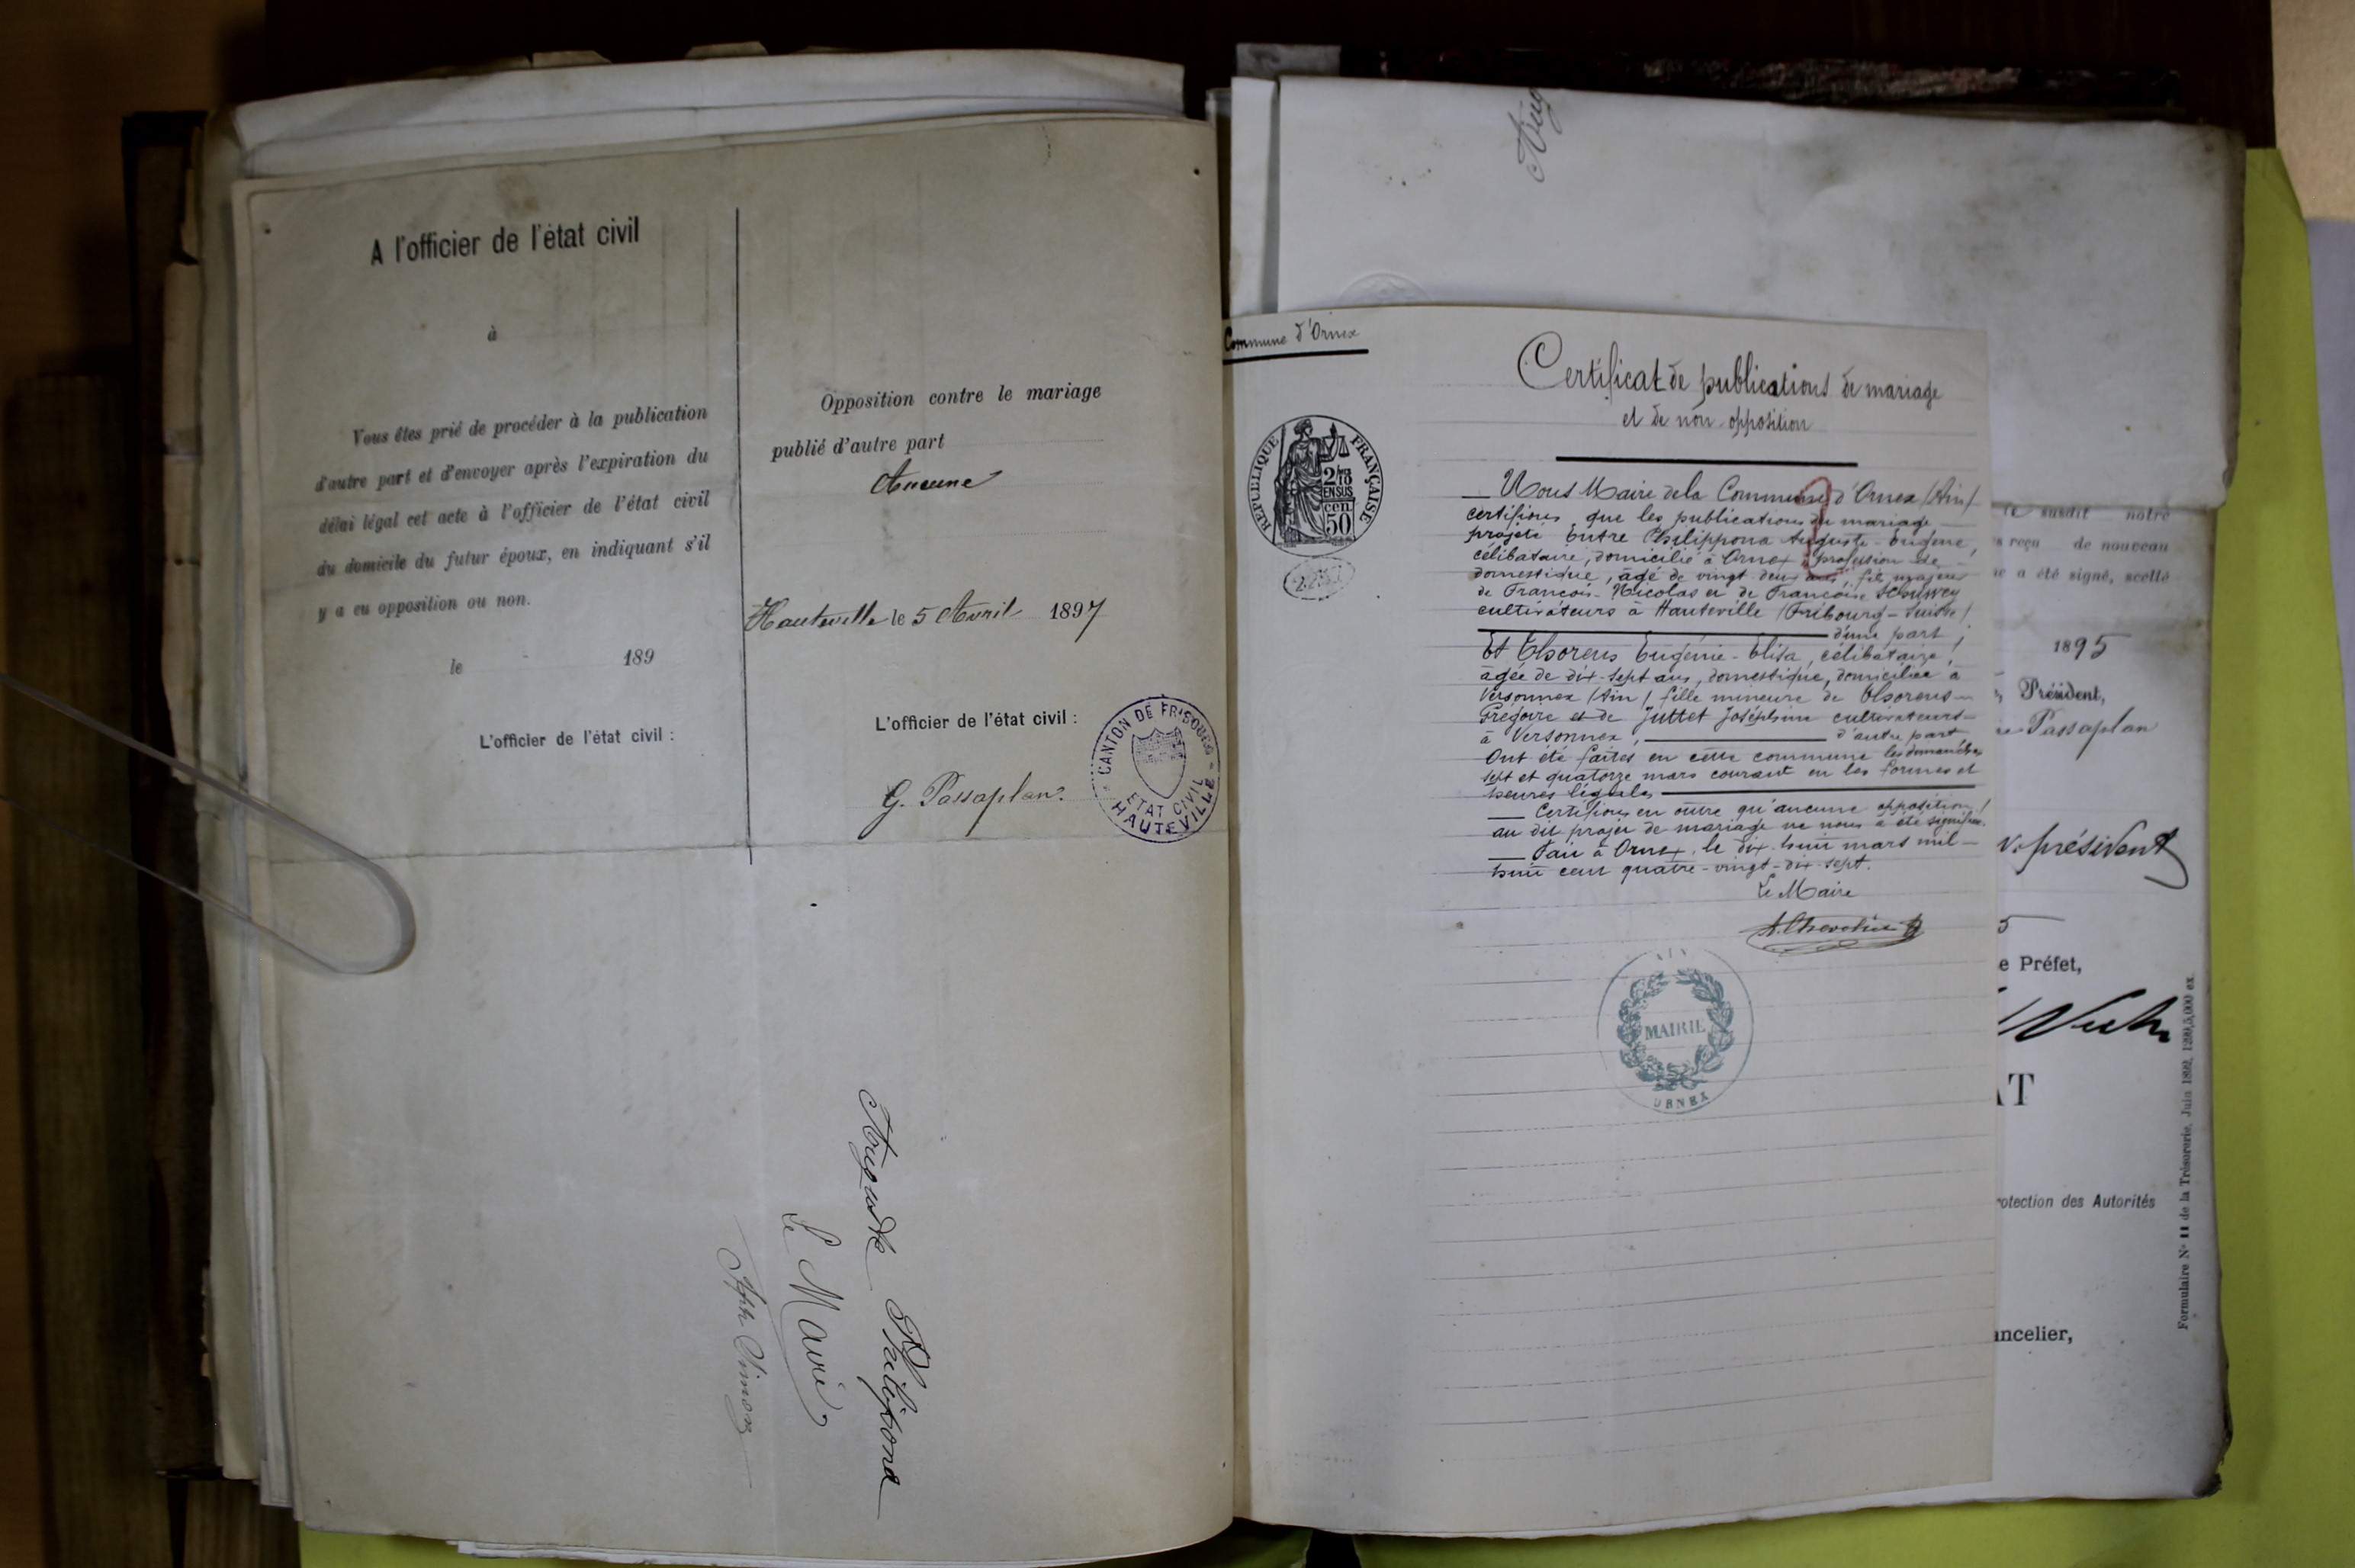 A l'officier de l'état civil
à
Vous êtes prié de procéder à la publication
d'autre part et d'envoyer après l'expiration du
délai légal cet acte à l'officier de l'état civil
du domicile du futur époux, en indiquant s'il
y a eu opposition ou non.
le 189
L'officier de l'état civil :
Opposition contre le mariage
publié d'autre part
Aucune
Hauteville le 5 Avril 1897
L'officier de l'état civil :
G. Passaplan.
CANTON DE FRIBOURG
ETAT CIVIL
HAUTEVILLE
Philipona
Le Maire
Commune d'Ornex
REPUBLIQUE FRANÇAISE
2/10
EN SUS
50 cen
Certificat de publications de mariage
et de non opposition
Nous Maire de la Commune d'Ornex (Ain)
certifions que les publications du mariage
projeté entre Philippona Auguste-Eugène,
célibataire, domicilié à Ornex, profession de
domestique, âgé de vingt deux ans, fils majeur
de François-Nicolas et de Françoise Schuwey
cultivateurs à Hauteville (Fribourg-Suisse)
d'une part ;
Et Thorens Eugénie-Elisa, célibataire,
âgée de dix-sept ans, domestique, domiciliée à
Versonnex (Ain) fille mineure de Thorens
Grégoire et de Juttet Joséphine cultivateurs
à Versonnex, d'autre part
Ont été faites en cette commune les dimanches
sept et quatorze mars courant en les formes et
heures légales
Certifions en outre qu'aucune opposition
au dit projet de mariage ne nous a été signifiée.
Fait à Ornex, le dix-huit mars mil
huit cent quatre-vingt-dix-sept.
Le Maire
AIN
MAIRIE
ORNEX
susdit notre
reçu de nouveau
a été signé, scellé
1895
Président,
Passaplan
v. président
e Préfet,
AT
rotection des Autorités
ancelier,
Formulaire N° 11 de la Trésorerie. Juin 1892.